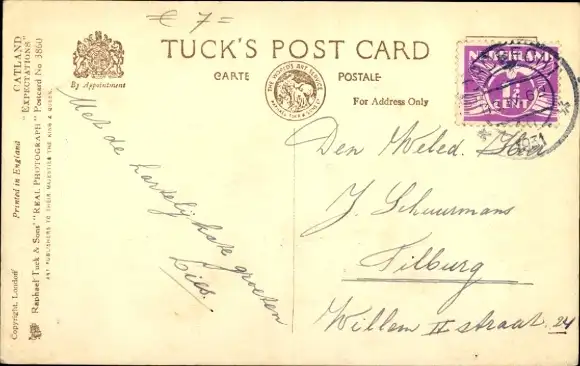 € 7=
TUCK'S POST CARD
CARTE POSTALE
By Appointment
THE WORLD'S ART SERVICE
For Address Only
NEDERLAND
CENT
1931
Met de
hartelijkste groeten
Lies.
Den Weled. Heer
J. Schuurmans
Tilburg
Willem II straat 24
CATLAND
"EXPECTATIONS"
Raphael Tuck & Sons' "REAL PHOTOGRAPH" Postcard No 3860
ART PUBLISHERS TO THEIR MAJESTIES THE KING & QUEEN
Copyright, London
Printed in England